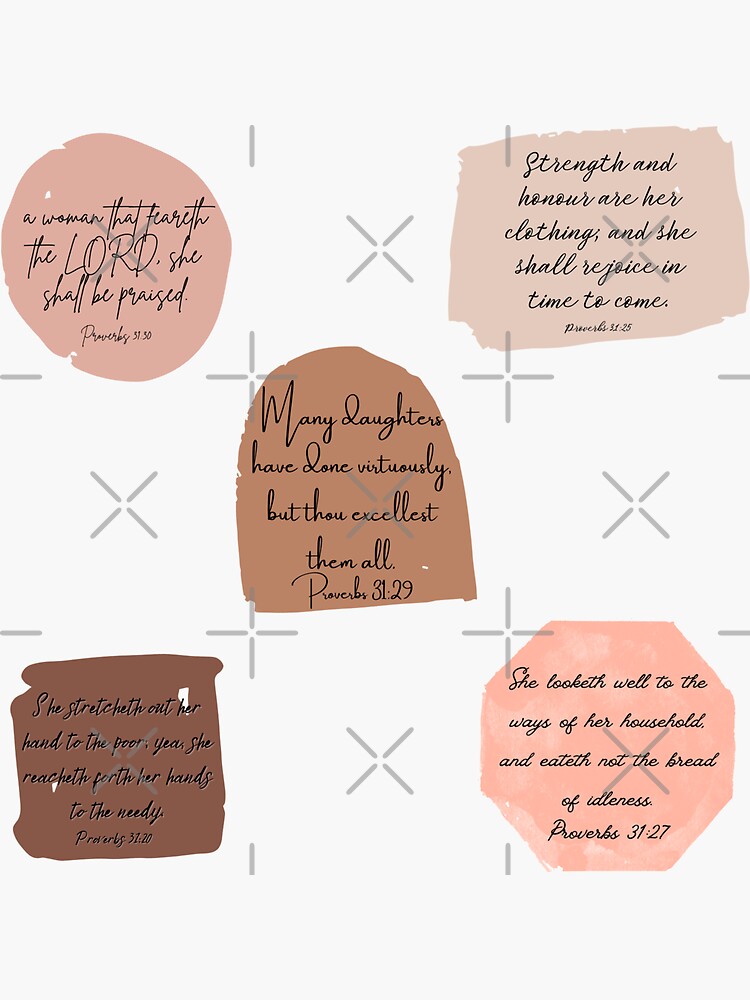 a woman that feareth
the LORD, she
shall be praised.
Proverbs 31:30
Strength and
honour are her
clothing; and she
shall rejoice in
time to come.
Proverbs 31:25
Many daughters
have done virtuously,
but thou excellest
them all.
Proverbs 31:29
She stretcheth out her
hand to the poor; yea, she
reacheth forth her hands
to the needy.
Proverbs 31:20
She looketh well to the
ways of her household,
and eateth not the bread
of idleness.
Proverbs 31:27